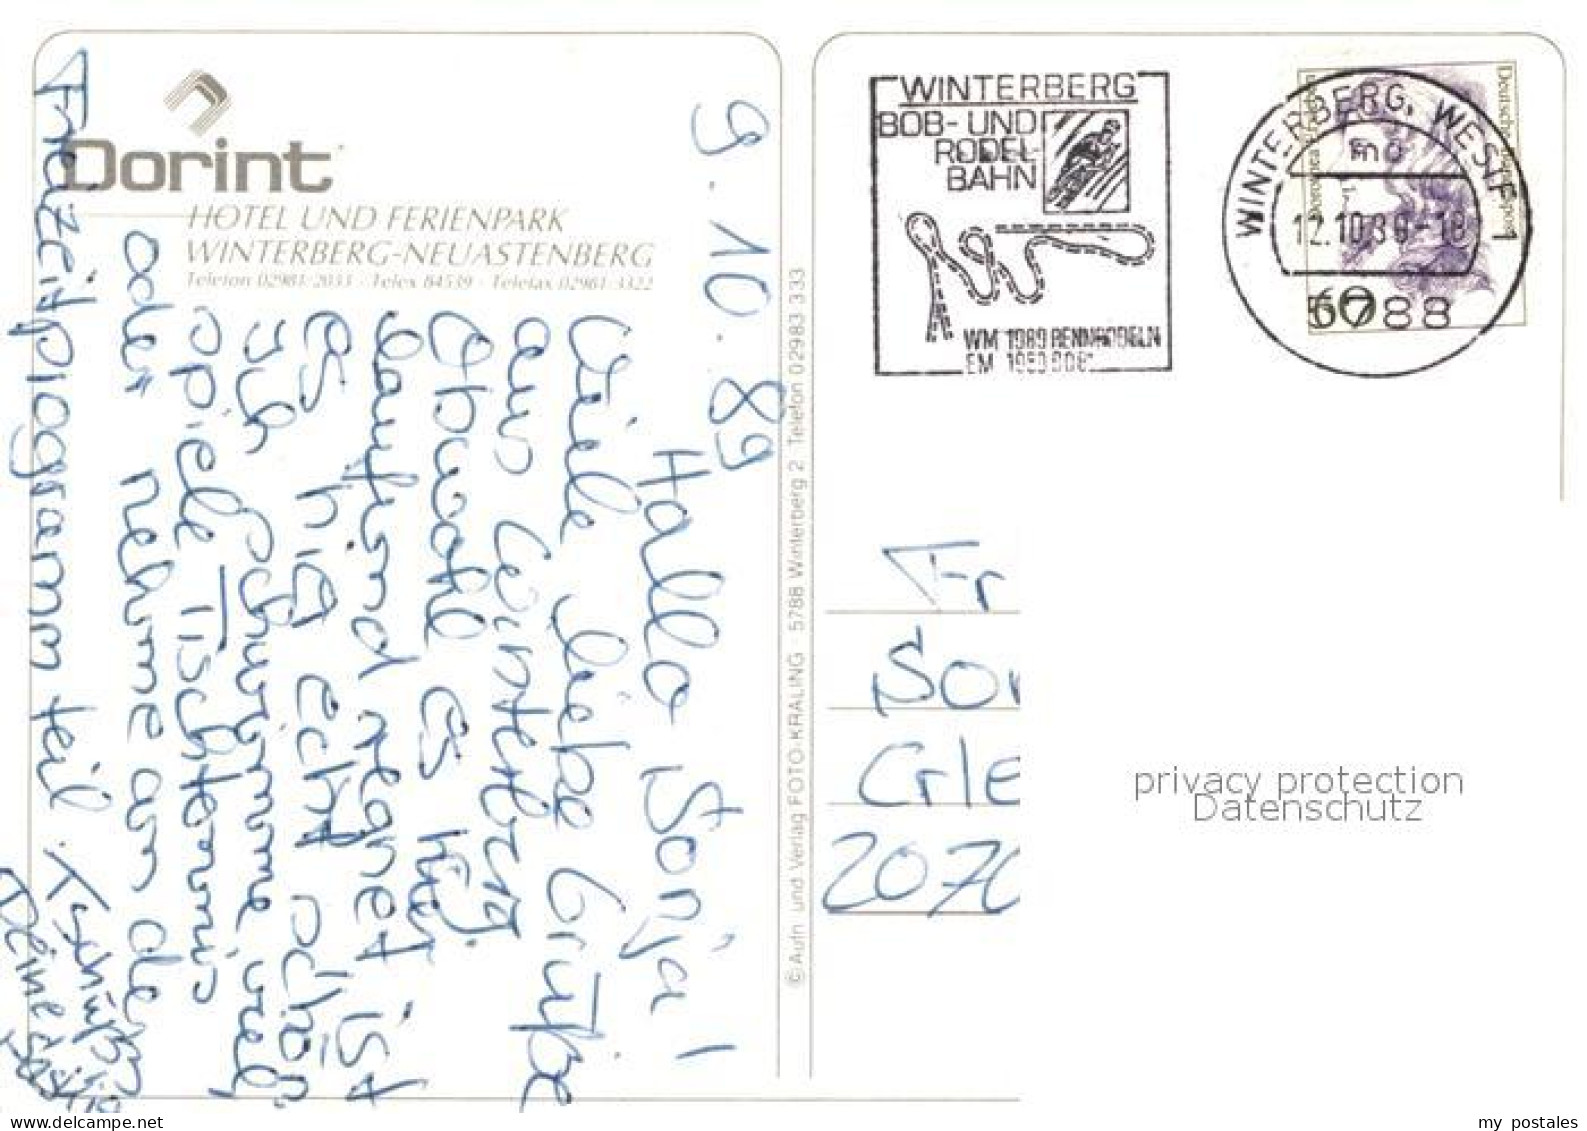 Dorint
HOTEL UND FERIENPARK
WINTERBERG-NEUASTENBERG
Telefon 02981/2033 · Telex 84539 · Telefax 02981/3322
9.10.89
Hallo Sonja!
Viele liebe Grüße
aus Winterberg.
Obwohl es hier
dauernd regnet ist
es hier echt schön
Ich schwimme viel,
spiele Tischtennis
oder nehme an dem
Freizeitprogramm teil. Tschüß
Deine
© Aufn. und Verlag FOTO-KRALING · 5788 Winterberg 2, Telefon 02983 333
WINTERBERG
BOB- UND
RODEL-
BAHN
WM 1989 RENNRODELN
EM 1989 BOB
WINTERBERG, WESTF 1
12.10.89-18
5788
Deutsche Bundespost
60
Fr
So
Gle
207
privacy protection
Datenschutz
delcampe.net
my_postales